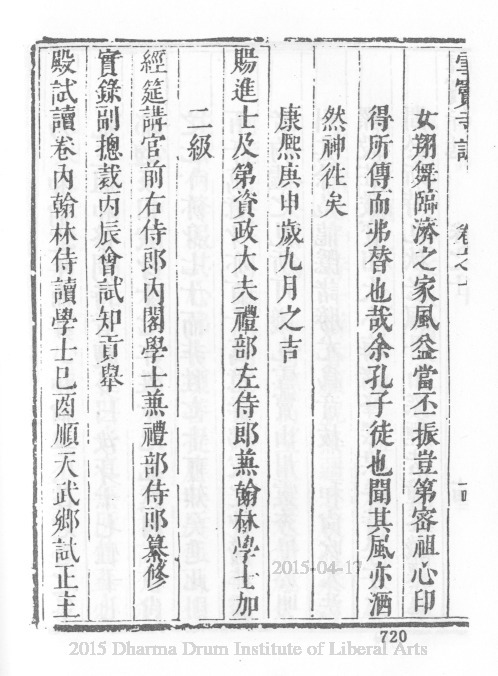 雪竇寺誌 卷之十 一四
女翔舞臨濟之家風益當丕振豈第密祖心印
得所傳而弗替也哉余孔子徒也聞其風亦洒
然神徃矣
康熙庚申歲九月之吉
賜進士及第資政大夫禮部左侍郎兼翰林學士加
二級
經筵講官前右侍郎內閣學士兼禮部侍郎纂修
實錄副摠裁丙辰會試知貢舉
殿試讀卷內翰林侍讀學士己酉順天武鄉試正主
720
2015-04-17
2015 Dharma Drum Institute of Liberal Arts